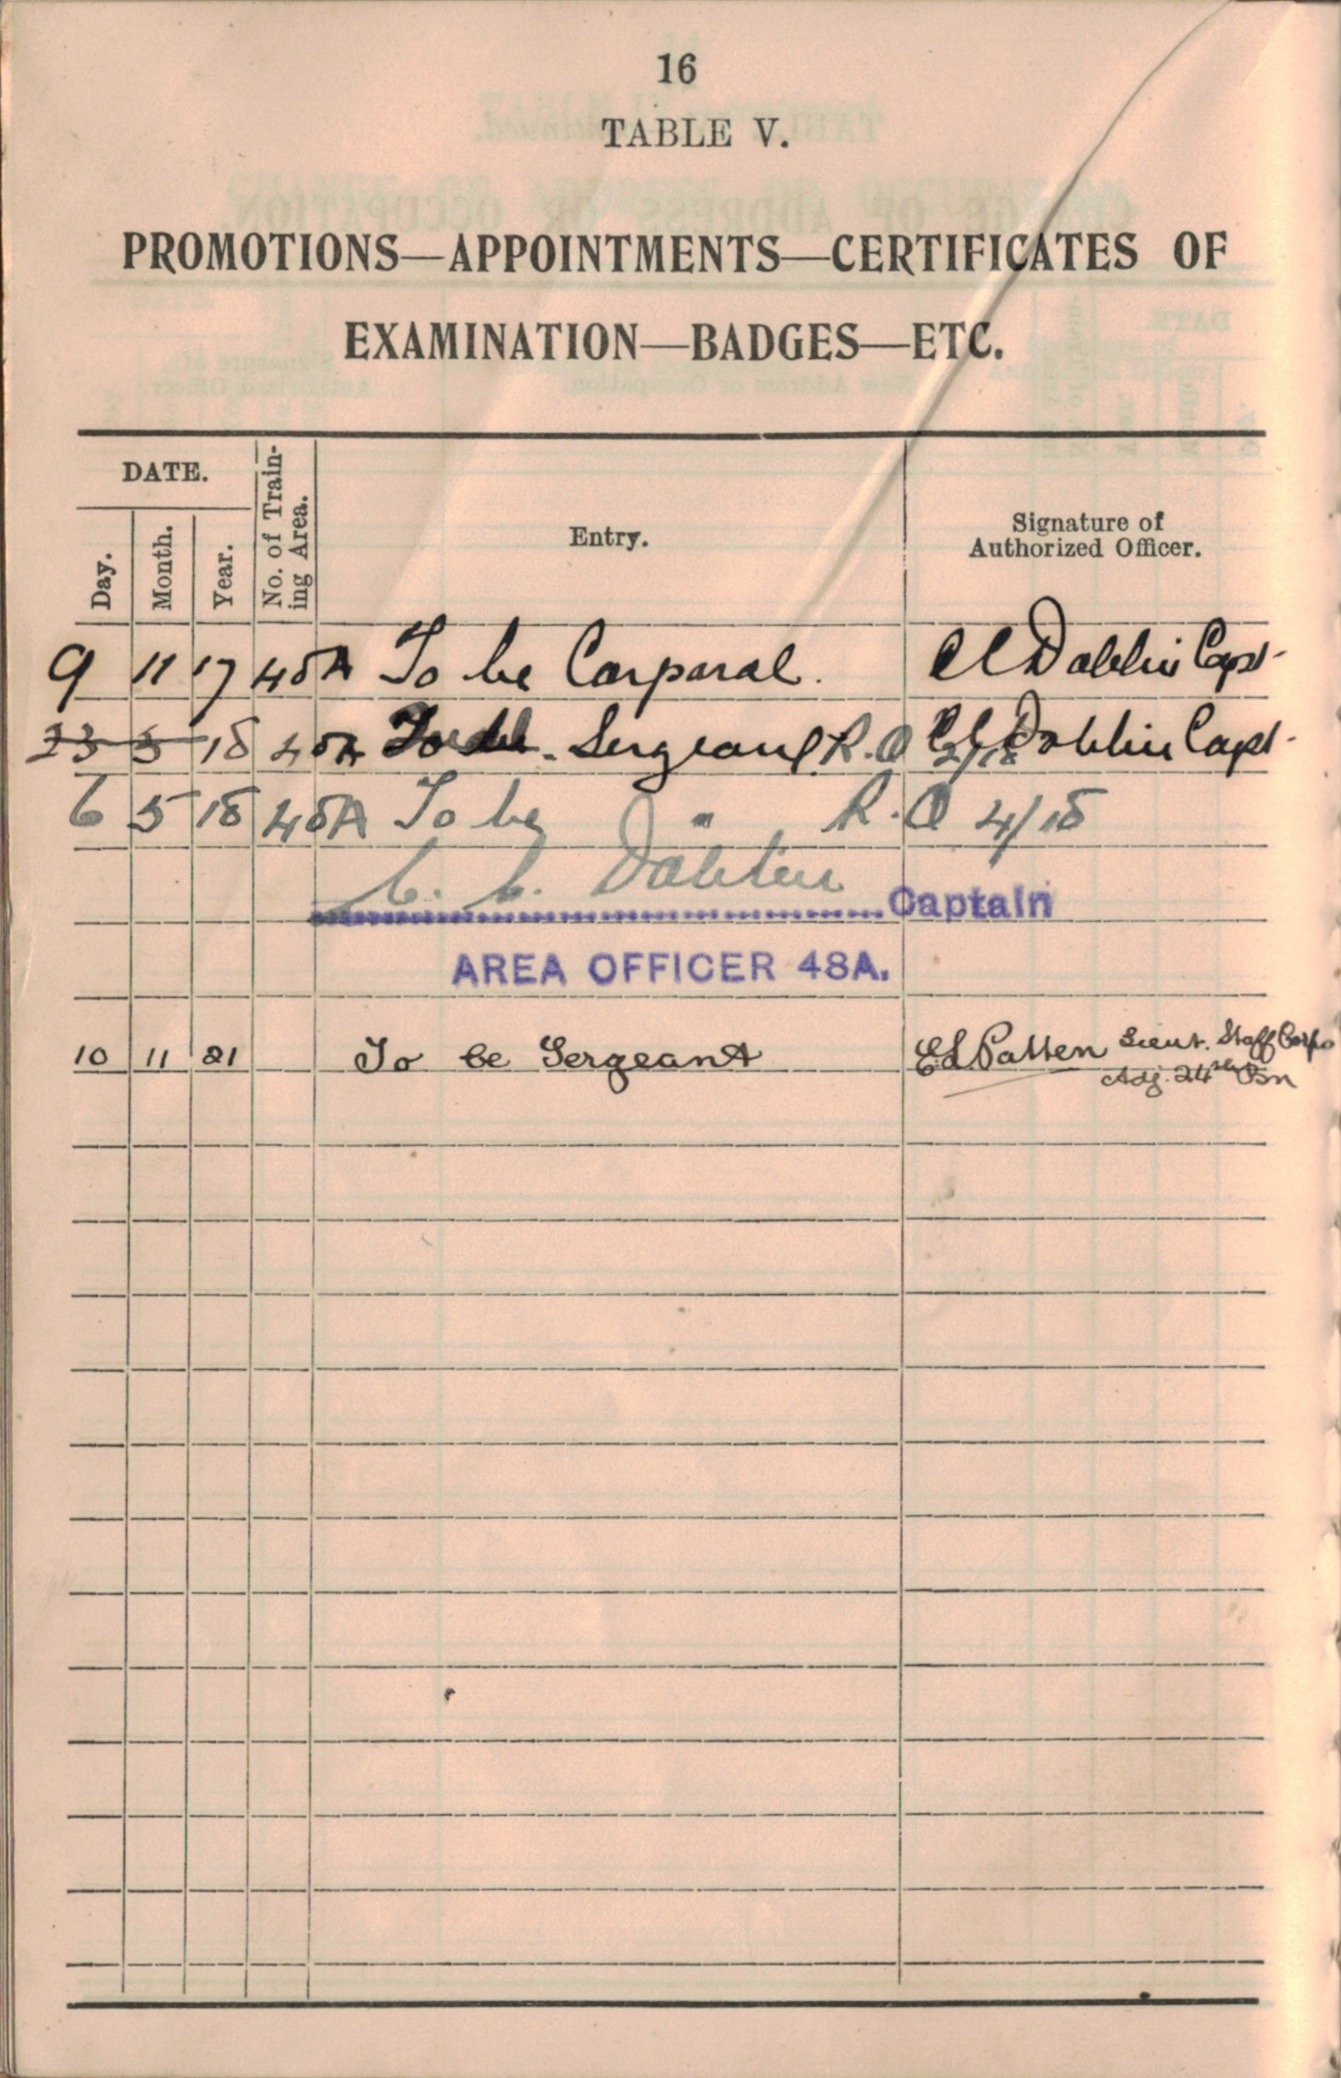 16
TABLE V.
PROMOTIONS—APPOINTMENTS—CERTIFICATES OF
EXAMINATION—BADGES—ETC.
DATE.
Day.
Month.
Year.
No. of Train-
ing Area.
Entry.
Signature of
Authorized Officer.
9 11 17 48A To be Corporal. C C Dahlin Capt.
23 3 18 48A To be Sergeant R.O 2/18 C C Dahlin Capt.
6 5 18 48A To be " R.O 4/18
C. C. Dahlin Captain
AREA OFFICER 48A.
10 11 21 To be Sergeant E L Patten Lieut. Staff Corps
Adj. 24th Bn